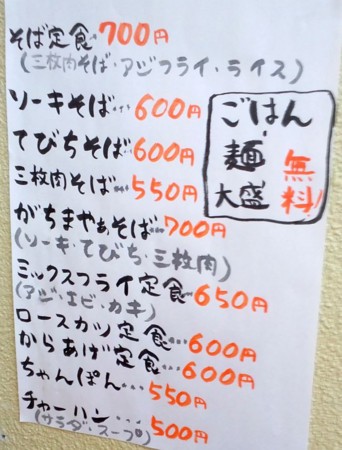 そば定食 700円
(三枚肉そば・アジフライ・ライス)
ソーキそば… 600円
てびちそば… 600円
三枚肉そば… 550円
がちまやぁそば… 700円
(ソーキ・てびち・三枚肉)
ミックスフライ定食… 650円
(アジ・エビ・カキ)
ロースカツ定食… 600円
からあげ定食… 600円
ちゃんぽん… 550円
チャーハン… 500円
(サラダ・スープ)
ごはん・
麺
大盛
無料!